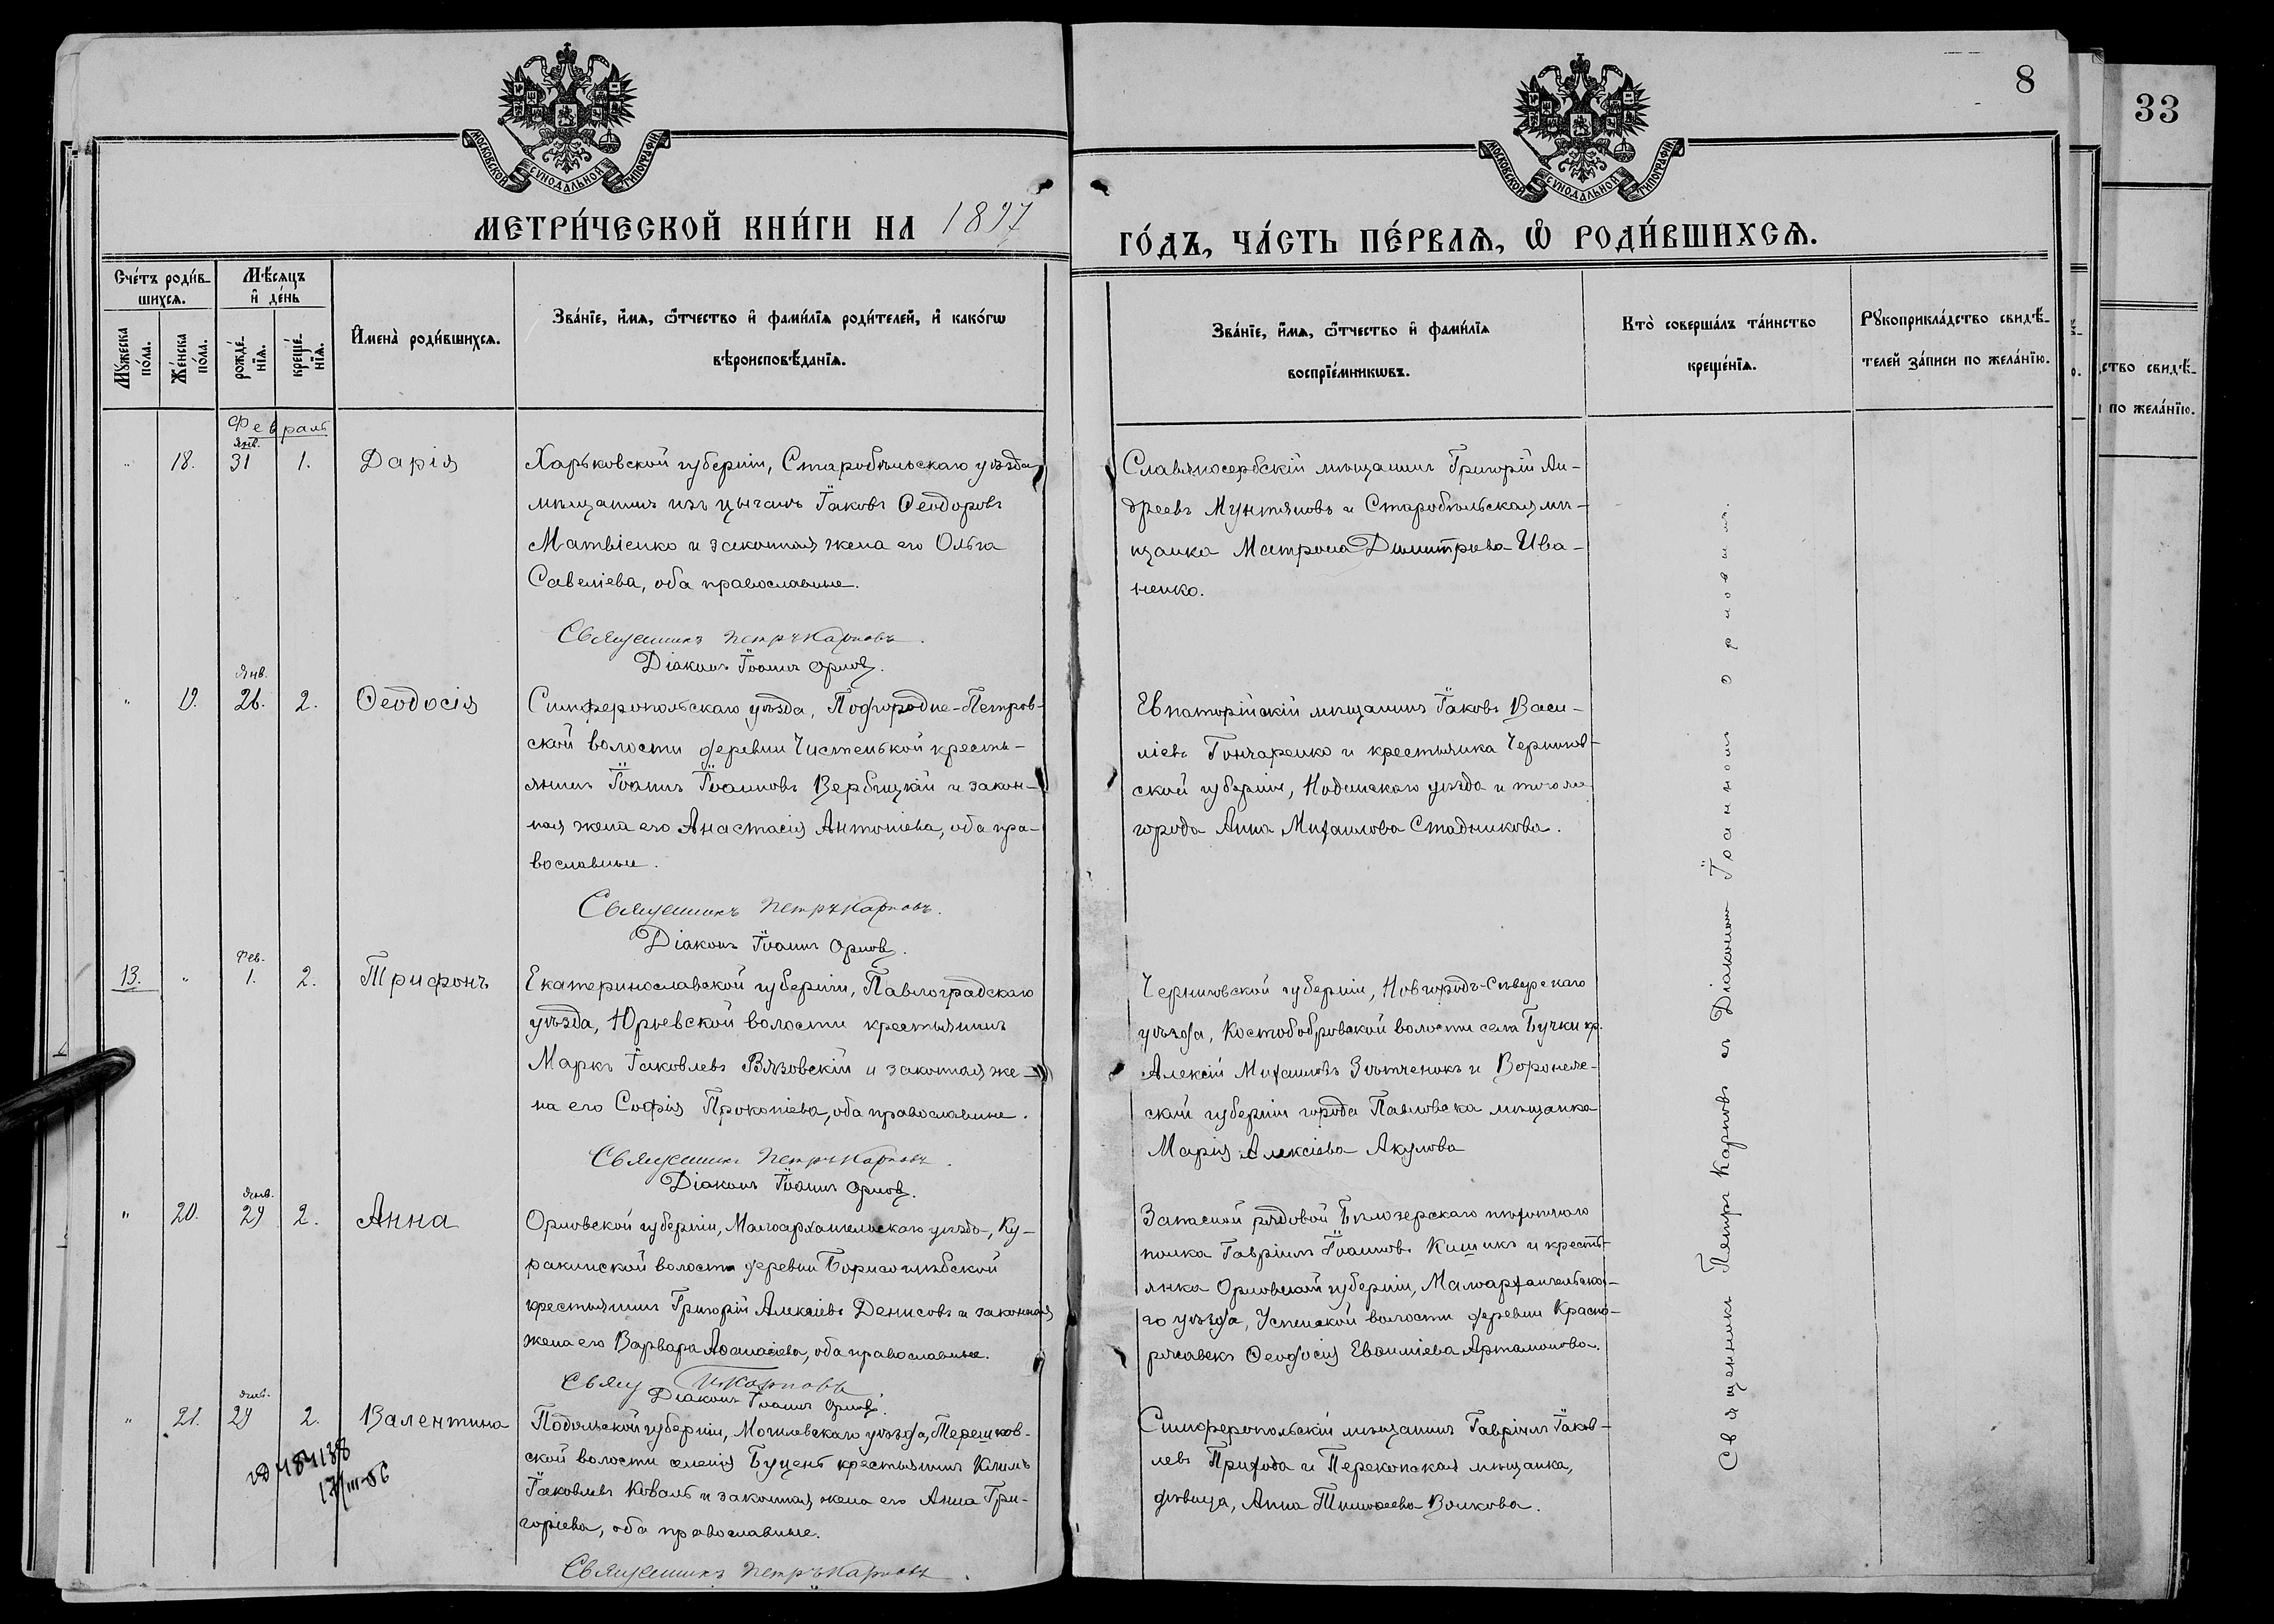 8
33
МОСКОВСКОЙ СѴНОДАЛЬНОЙ ТИПОГРАФІИ
МОСКОВСКОЙ СѴНОДАЛЬНОЙ ТИПОГРАФІИ
МЕТРИ́ЧЕСКОЙ КНИ́ГИ НА 1897
ГО́ДЪ, ЧА́СТЬ ПЕ́РВАѦ, Ѡ҆ РОДИ́ВШИХСѦ.
Сче́тъ роди́в-
шихсѧ.
Мѣ́сѧцъ
и҆ де́нь
Мꙋ́жеска по́ла.
Же́нска по́ла.
рожде́-
нїѧ.
креще́-
нїѧ.
И҆мена̀ роди́вшихсѧ.
Зва́нїе, и҆́мѧ, ѻ҆́тчество и҆ фами́лїѧ роди́телей, и҆ како́гѡ
вѣроисповѣ́данїѧ.
Зва́нїе, и҆́мѧ, ѻ҆́тчество и҆ фами́лїѧ
воспрїе́мникѡвъ.
Кто̀ соверша́лъ та́инство
креще́нїѧ.
Рꙋкоприкла́дство свидѣ́-
телей за́писи по жела́нїю.
ство свидѣ́-
по жела́нїю.
Февраль
Янв.
" 18. 31 1. Дарія
Харьковской губерніи, Старобѣльскаго уѣзда
мѣщанинъ изъ цыганъ Іаковъ Ѳеодоровъ
Матвіенко и законная жена его Ольга
Савеліева, оба православные.
Священникъ Петръ Карповъ.
Діаконъ Іоаннъ Орловъ.
Славяносербскій мѣщанинъ Григорій Ан-
дреевъ Мунтяновъ и Старобѣльская мѣ-
щанка Матрона Димитріева Ива-
ненко.
Янв.
" 19. 26. 2. Ѳеодосія
Симферопольскаго уѣзда, Подгородне-Петров-
ской волости деревни Чистенькой кресть-
янинъ Іоаннъ Іоанновъ Вербицкій и закон-
ная жена его Анастасія Антоніева, оба пра-
вославные.
Священникъ Петръ Карповъ.
Діаконъ Іоаннъ Орловъ.
Евпаторійскій мѣщанинъ Іаковъ Васи-
ліевъ Гончаренко и крестьянка Чернигов-
ской губерніи, уѣзда и того же
города Анна Михаилова Стадникова.
Фев.
13. " 1. 2. Трифонъ
Екатеринославской губерніи, Павлоградскаго
уѣзда, Юрьевской волости крестьянинъ
Маркъ Іаковлевъ Вязовскій и законная же-
на его Софія Прокопіева, оба православные.
Священникъ Петръ Карповъ.
Діаконъ Іоаннъ Орловъ.
Черниговской губерніи, Новгородъ-Сѣверскаго
уѣзда, Костобобровской волости села Бучки кр.
Алексій Михаиловъ и Воронеже-
ской губерніи города Павловска мѣщанка
Марія Алексіева Акулова
Янв.
" 20. 29 2. Анна
Орловской губерніи, Малоархангельскаго уѣзда, Ку-
ракинской волости деревни Борисоглѣбской
крестьянинъ Григорій Алексіевъ Денисовъ и законная
жена его Варвара Аѳанасіева, оба православные.
Свящ П. Карповъ
Діаконъ Іоаннъ Орловъ.
Запасной рядовой Бѣлозерскаго пѣхотнаго
полка Гавріилъ Іоанновъ Кишикъ и кресть-
янка Орловской губерніи, Малоархангельска-
го уѣзда, Успенской волости деревни Красно-
Ѳеодосія Евѳиміева Артамонова.
Янв.
" 21. 29 2. Валентина
Подольской губерніи, Могилевскаго уѣзда, Терешков-
ской волости селенія Буцень крестьянинъ Климъ
Іаковлевъ Коваль и законная жена его Анна Гри-
горіева, оба православные.
Священникъ Петръ Карповъ.
Симферопольскій мѣщанинъ Гавріилъ Іаков-
левъ Приходa и Перекопская мѣщанка,
дѣвица, Анна Тимоѳеева Волкова.
Священникъ Петръ Карповъ съ Діакономъ Іоанномъ Орловымъ.